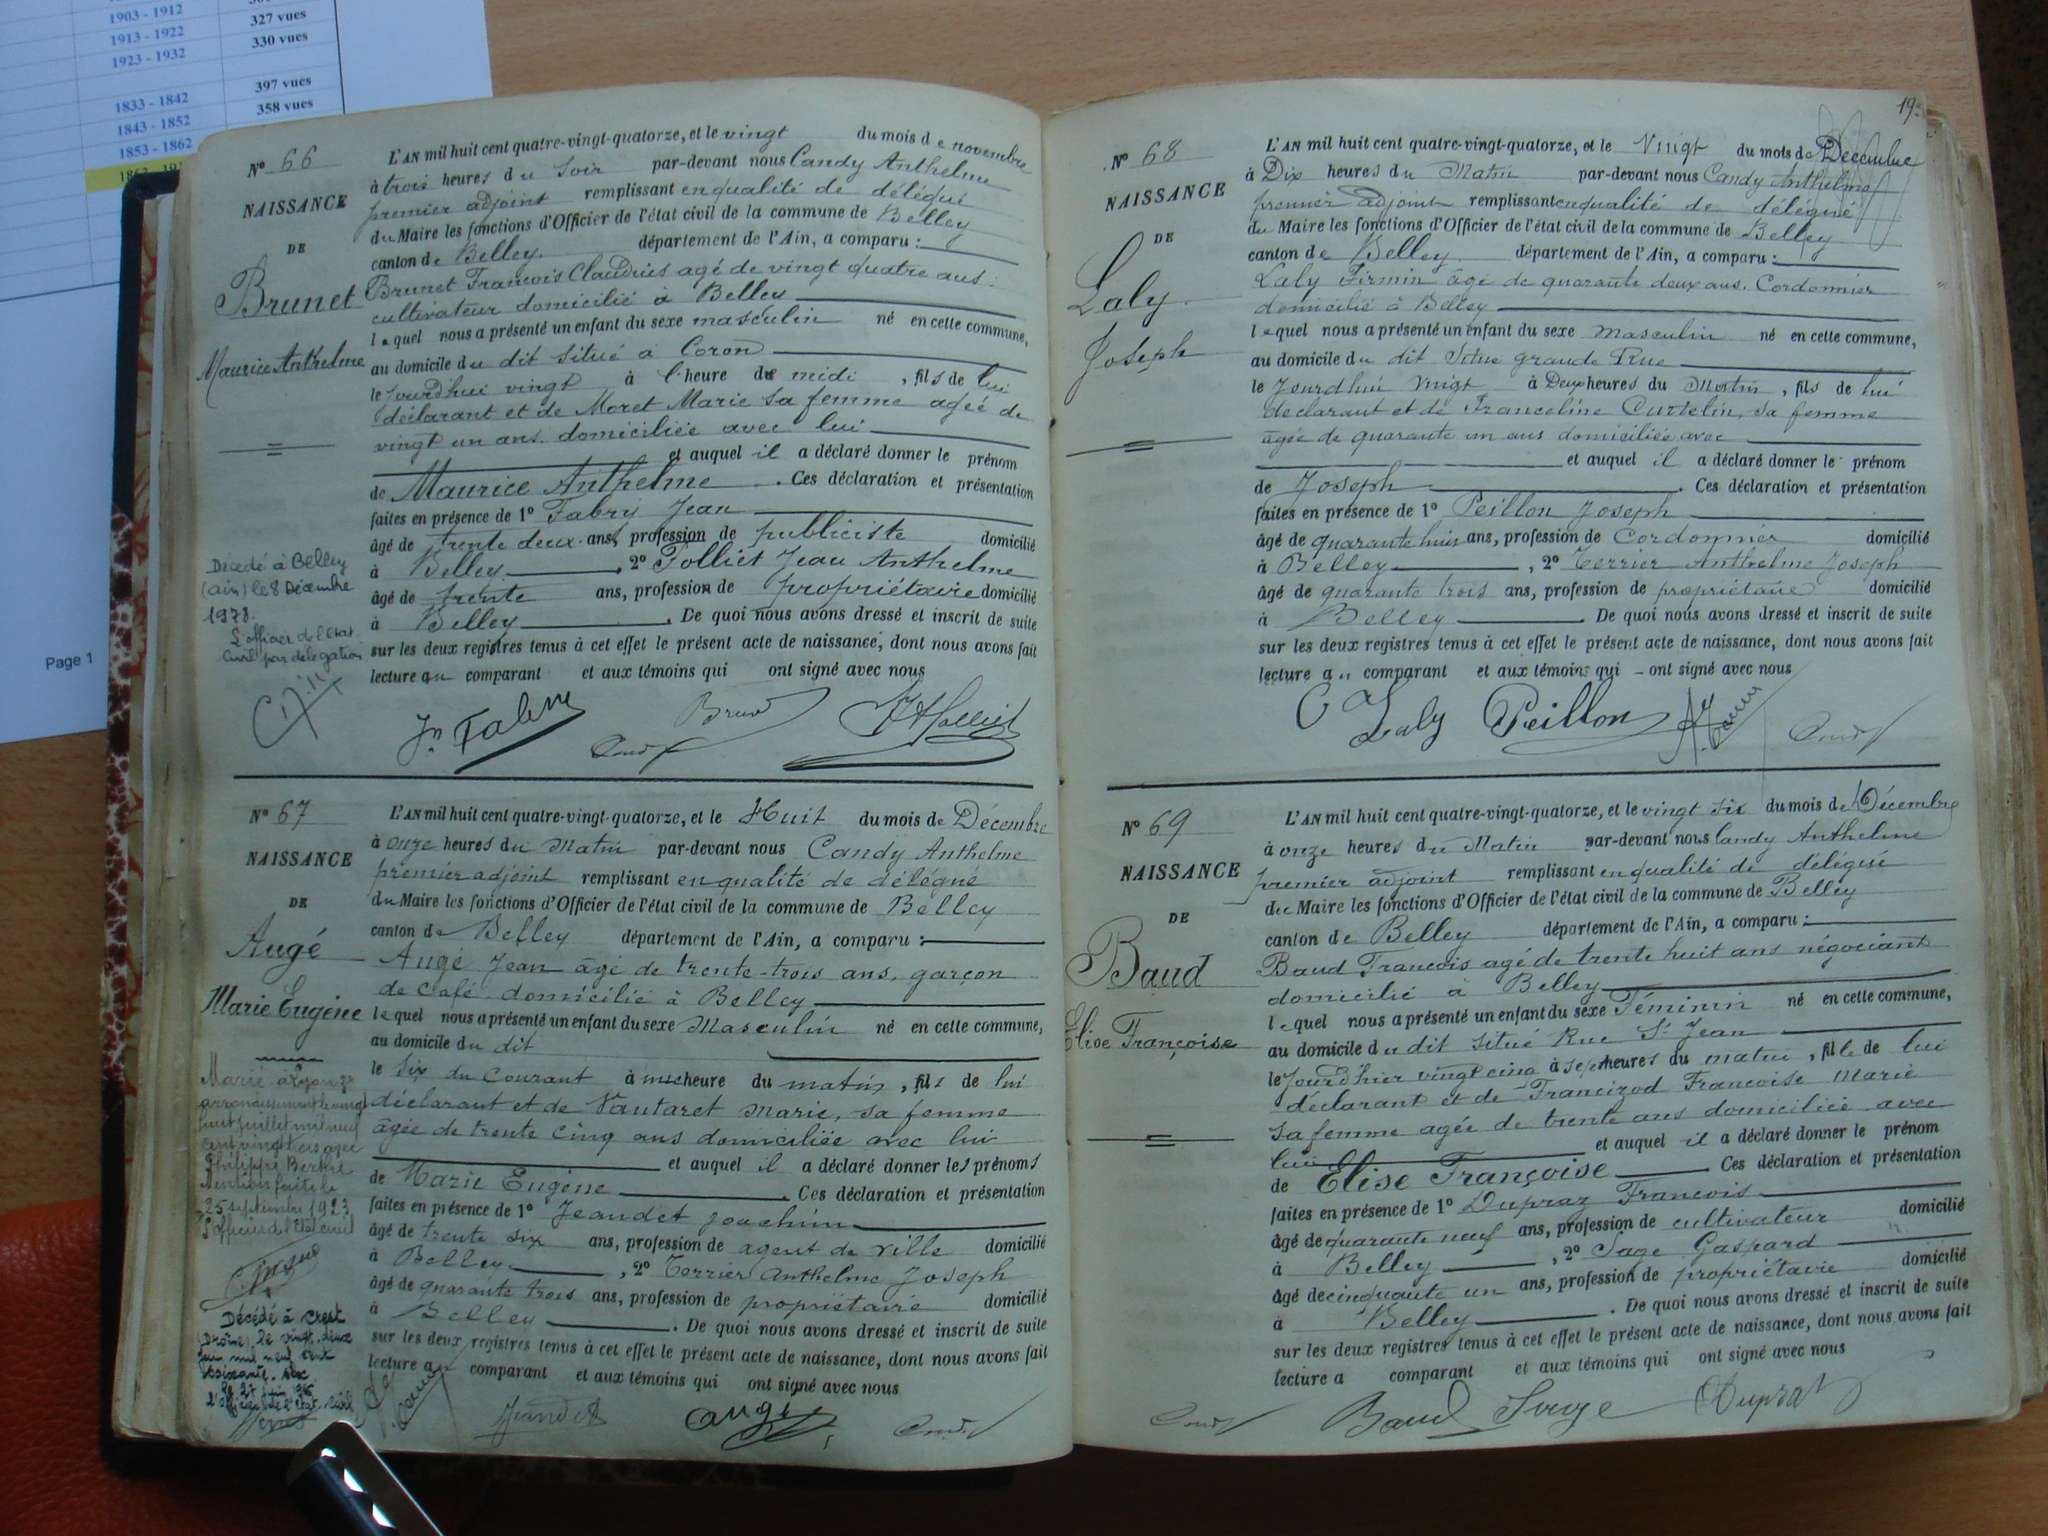 1903 - 1912
327 vues
1913 - 1922
330 vues
1923 - 1932
397 vues
1833 - 1842
358 vues
1843 - 1852
1853 - 1862
Page 1
N° 66
NAISSANCE
DE
Brunet
Maurice Anthelme
Décédé à Belley
(ain) le 8 Décembre
1978.
L'officier de l'Etat
Civil par délégation
L'AN mil huit cent quatre-vingt-quatorze, et le vingt du mois de novembre
à trois heures du soir par-devant nous Candy Anthelme
premier adjoint remplissant en qualité de délégué
du Maire les fonctions d'Officier de l'état civil de la commune de Belley
canton de Belley département de l'Ain, a comparu :
Brunet François Claudius agé de vingt quatre ans
cultivateur domicilié à Belley
lequel nous a présenté un enfant du sexe masculin né en cette commune,
au domicile du dit situé à Coron
le jourd'hui vingt à l'heure de midi , fils de lui
déclarant et de Moret Marie sa femme agée de
vingt un ans domiciliée avec lui
et auquel il a déclaré donner le prénom
de Maurice Anthelme . Ces déclaration et présentation
faites en présence de 1° Fabry Jean
âgé de trente deux ans, profession de publiciste domicilié
à Belley , 2° Folliet Jean Anthelme
âgé de trente ans, profession de propriétaire domicilié
à Belley . De quoi nous avons dressé et inscrit de suite
sur les deux registres tenus à cet effet le présent acte de naissance, dont nous avons fait
lecture au comparant et aux témoins qui ont signé avec nous
N° 67
NAISSANCE
DE
Augé
Marie Eugène
Marié à Lyon 3e
arrondissement le vingt
huit juillet mil neuf
cent vingt trois avec
Mention faite le
25 septembre 1923
L'officier de l'Etat civil
Décédé à Crest
(Drôme) le vingt-deux
juin mil neuf cent
soixante-six
L'AN mil huit cent quatre-vingt-quatorze, et le Huit du mois de Décembre
à onze heures du Matin par-devant nous Candy Anthelme
premier adjoint remplissant en qualité de délégué
du Maire les fonctions d'Officier de l'état civil de la commune de Belley
canton de Belley département de l'Ain, a comparu :
Augé Jean âgé de trente-trois ans, garçon
de Café domicilié à Belley
lequel nous a présenté un enfant du sexe Masculin né en cette commune,
au domicile du dit
le six du courant à une heure du matin , fils de lui
déclarant et de Vautaret Marie, sa femme
âgée de trente cinq ans domiciliée avec lui
et auquel il a déclaré donner les prénoms
de Marie Eugène . Ces déclaration et présentation
faites en présence de 1° Jeandet Joachim
âgé de trente six ans, profession de agent de ville domicilié
à Belley , 2° Terrier Anthelme Joseph
âgé de quarante trois ans, profession de propriétaire domicilié
à Belley . De quoi nous avons dressé et inscrit de suite
sur les deux registres tenus à cet effet le présent acte de naissance, dont nous avons fait
lecture au comparant et aux témoins qui ont signé avec nous
Jeandet Augé
N° 68
NAISSANCE
DE
Laly
Joseph
L'AN mil huit cent quatre-vingt-quatorze, et le Vingt du mois de Décembre
à Dix heures du Matin par-devant nous Candy Anthelme
premier adjoint remplissant en qualité de délégué
du Maire les fonctions d'Officier de l'état civil de la commune de Belley
canton de Belley département de l'Ain, a comparu :
Laly Firmin âgé de quarante deux ans, Cordonnier
domicilié à Belley
lequel nous a présenté un enfant du sexe masculin né en cette commune,
au domicile du dit Situé grande Rue
le Jourdhui vingt à Deux heures du Matin , fils de lui
déclarant et de Franceline Curtelin, sa femme
âgée de quarante un ans domiciliée avec
et auquel il a déclaré donner le prénom
de Joseph . Ces déclaration et présentation
faites en présence de 1° Peillon Joseph
âgé de quarante huit ans, profession de Cordonnier domicilié
à Belley , 2° Terrier Anthelme Joseph
âgé de quarante trois ans, profession de propriétaire domicilié
à Belley . De quoi nous avons dressé et inscrit de suite
sur les deux registres tenus à cet effet le présent acte de naissance, dont nous avons fait
lecture au comparant et aux témoins qui ont signé avec nous
Laly Peillon
N° 69
NAISSANCE
DE
Baud
Elise Françoise
L'AN mil huit cent quatre-vingt-quatorze, et le vingt six du mois de Décembre
à onze heures du Matin par-devant nous Candy Anthelme
premier adjoint remplissant en qualité de délégué
du Maire les fonctions d'Officier de l'état civil de la commune de Belley
canton de Belley département de l'Ain, a comparu :
Baud François agé de trente huit ans négociant
domicilié à Belley
lequel nous a présenté un enfant du sexe Féminin né en cette commune,
au domicile du dit situé Rue St Jean
le jourd'hier vingt cinq à sept heures du matin , fille de lui
déclarant et de Francizod Françoise Marie
sa femme agée de trente ans domiciliée avec
lui et auquel il a déclaré donner le prénom
de Elise Françoise Ces déclaration et présentation
faites en présence de 1° Dupraz François
âgé de quarante neuf ans, profession de cultivateur domicilié
à Belley , 2° Sage Gaspard
âgé de cinquante un ans, profession de propriétaire domicilié
à Belley . De quoi nous avons dressé et inscrit de suite
sur les deux registres tenus à cet effet le présent acte de naissance, dont nous avons fait
lecture a comparant et aux témoins qui ont signé avec nous
Baud Sage Dupraz